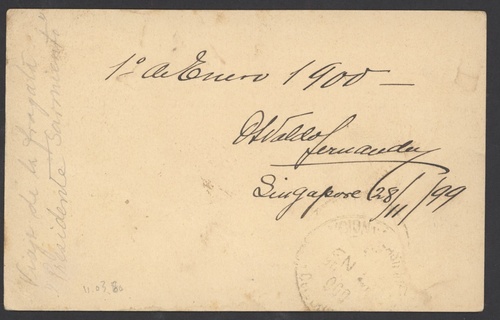 1º de Enero 1900 —
Osvaldo
Fernandez
Singapore 28/11/99
Viaje de la fragata
Presidente Sarmiento
11.03.80